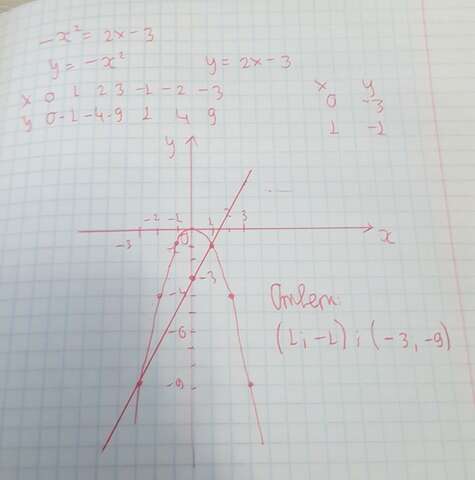 -x² = 2x - 3
y = -x² y = 2x - 3
x 0 1 2 3 -1 -2 -3
y 0 -1 -4 -9 1 4 9
x y
0 -3
1 -1
y
-3 -2 -1 0 1 2 3 x
-1
-3
-4
-6
-9
Ответ:
(1; -1); (-3, -9)